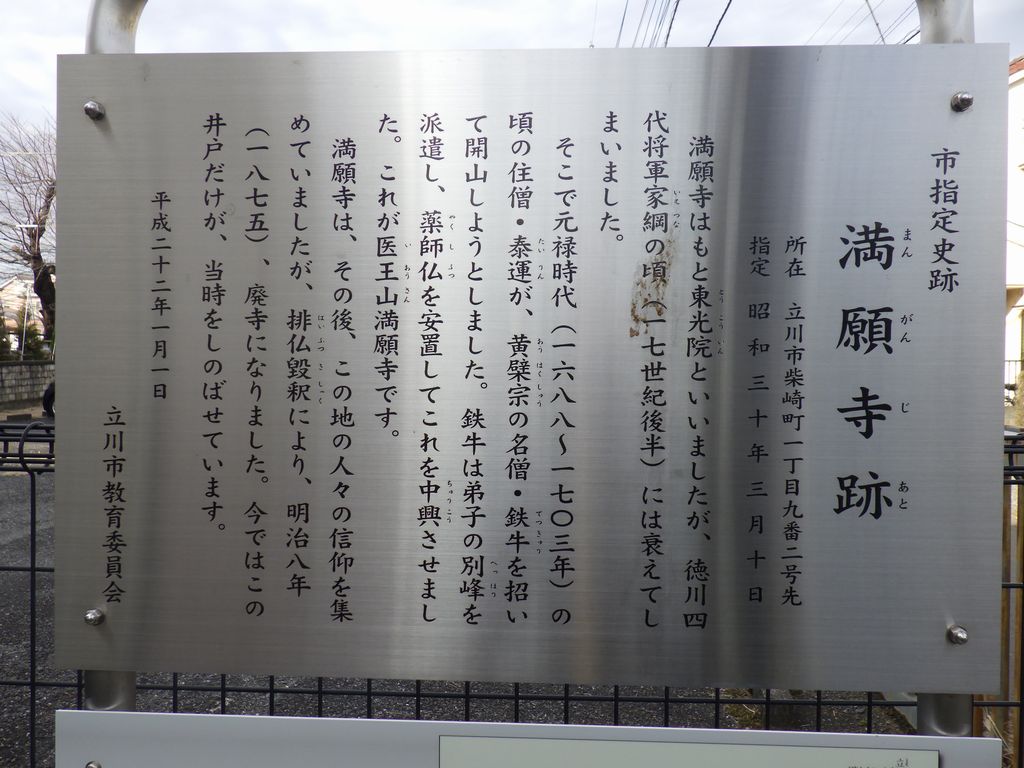 市指定史跡
満願寺跡
まんがんじあと
所在 立川市柴崎町一丁目九番二号先
指定 昭和三十年三月十日
満願寺はもと東光院といいましたが、徳川四
とうこういん
代将軍家綱の頃(一七世紀後半)には衰えてし
いえつな
まいました。
そこで元禄時代(一六八八～一七〇三年)の
頃の住僧・泰運が、黄檗宗の名僧・鉄牛を招い
たいうん おうばくしゅう てつぎゅう
て開山しようとしました。鉄牛は弟子の別峰を
べっぽう
派遣し、薬師仏を安置してこれを中興させまし
やくしぶつ ちゅうこう
た。これが医王山満願寺です。
いおうさん
満願寺は、その後、この地の人々の信仰を集
めていましたが、排仏毀釈により、明治八年
はいぶつきしゃく
(一八七五)、廃寺になりました。今ではこの
井戸だけが、当時をしのばせています。
平成二十二年一月一日
立川市教育委員会